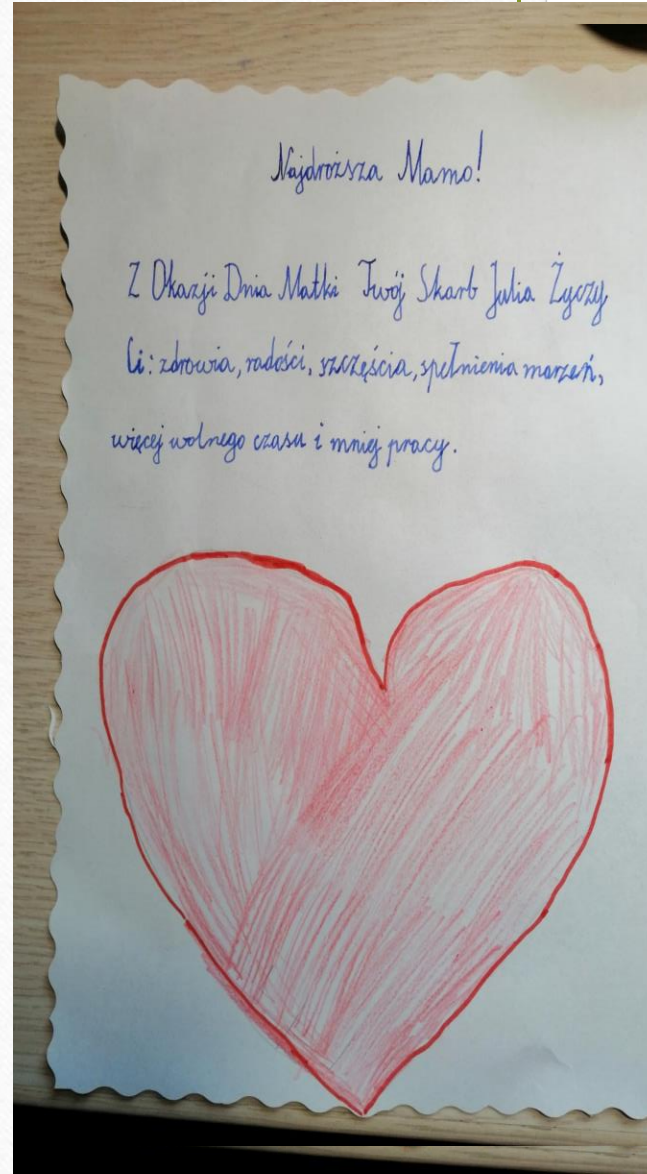 Najdroższa Mamo!
Z Okazji Dnia Matki Twój Skarb Julia Życzy
Ci: zdrowia, radości, szczęścia, spełnienia marzeń,
więcej wolnego czasu i mniej pracy.